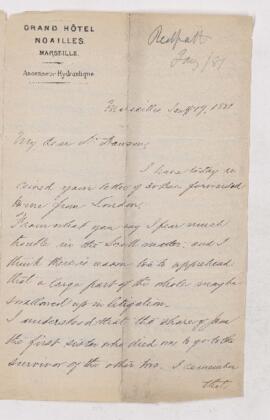 GRAND HÔTEL
NOAILLES.
MARSEILLE.
Ascenseur Hydraulique
Redpath
Jany /81
Marseilles Jany 19, 1881
My dear Dr Dawson,
I have today re-
ceived your letter of 30 Dec forwarded
to me from London,
From what you say I fear much
trouble in the Scott matter; and I
think there is room too to apprehend
that a large part of the whole may be
swallowed up in litigation.
I understood that the share of
the first sister who died was to go to the
survivor of the other two. I remember
that